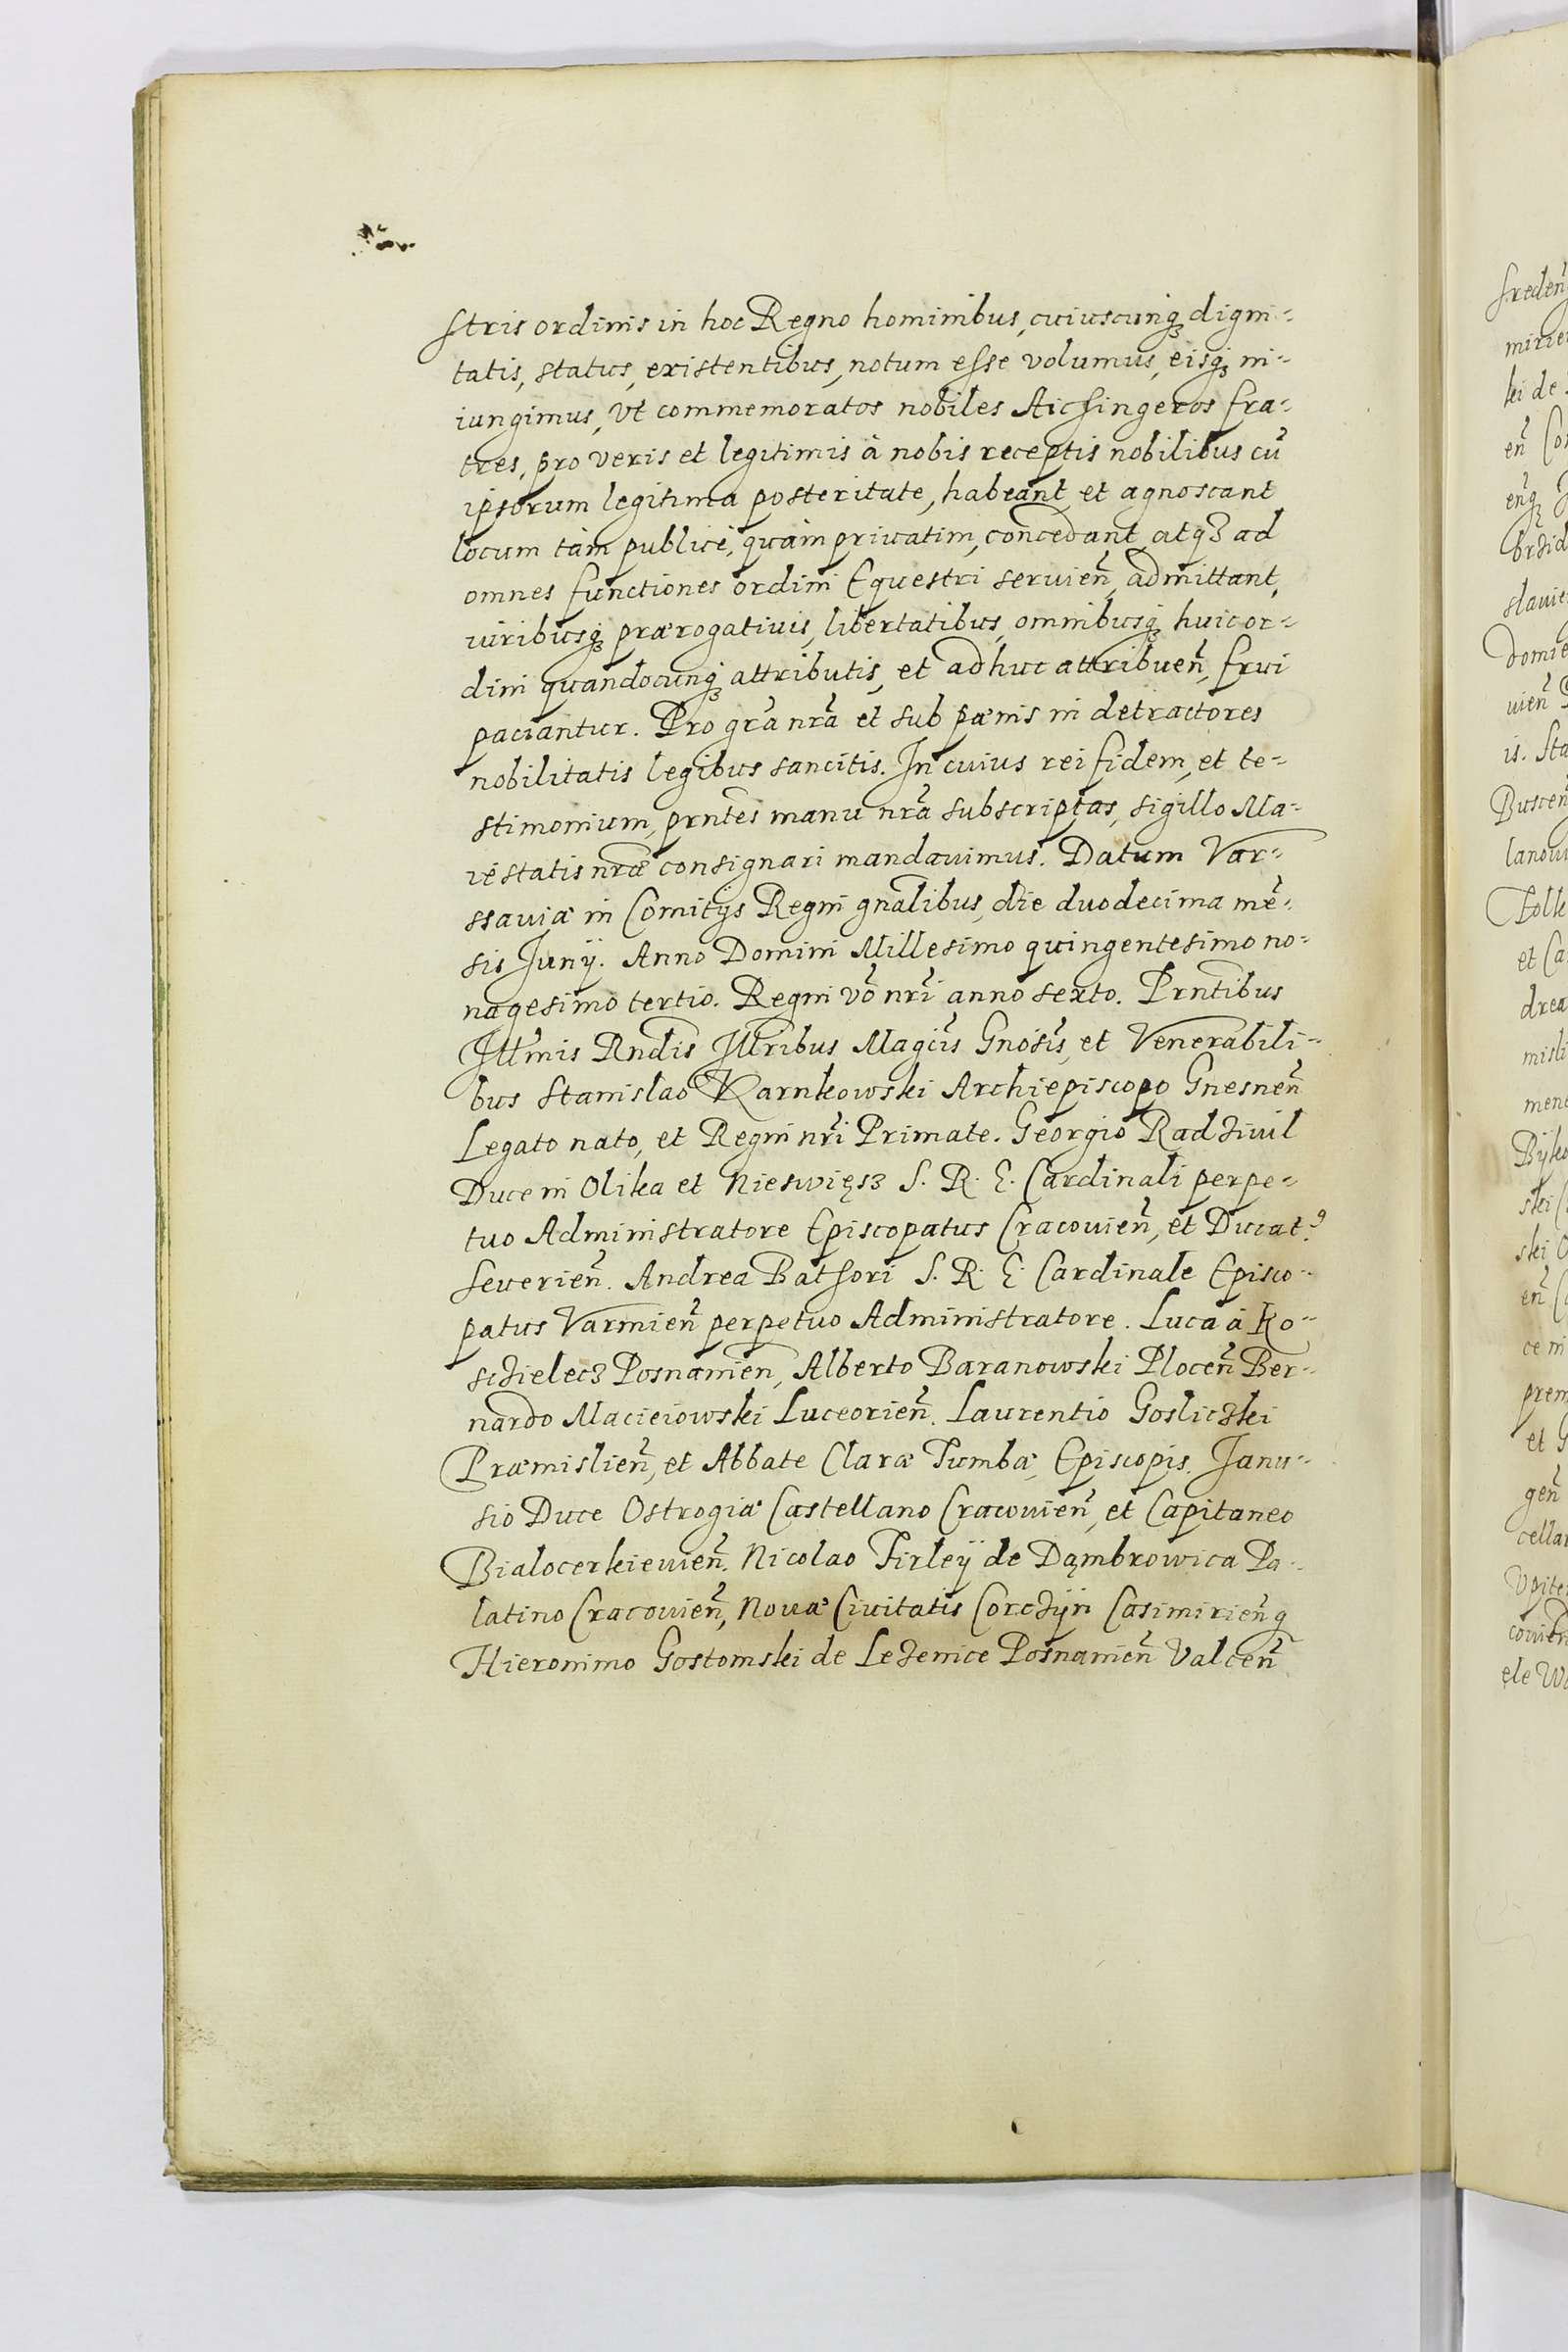 stris ordinis in hoc Regno hominibus, cuiuscunqꝫ digni-
tatis, status, existentibus, notum esse volumus, eisqꝫ in-
iungimus, vt commemoratos nobiles Aichingeros fra-
tres, pro veris et legitimis à nobis receptis nobilibus cũ
ipsorum legitima posteritate, habeant et agnoscant
locum tàm publicè, quàm priuatim, concedant atqꝫ ad
omnes functiones ordini Equestri seruieñ, admittant,
iuribusqꝫ prærogatiuis, libertatibus, omnibusqꝫ huic or-
dini quandocunqꝫ attributis, et adhuc attribueñ, frui
paciantur. Pro gr̃a nr̃a et sub pænis in detractores
nobilitatis legibus sancitis. In cuius rei fidem, et te-
stimonium, prñtes manu nr̃a subscriptas, sigillo Ma-
iestatis nr̃æ consignari mandauimus. Datum Var-
ssauiæ in Comitijs Regni gñalibus, die duodecima mẽ-
sis Junij. Anno Domini Millesimo quingentesimo no-
nagesimo tertio. Regni võ nr̃i anno sexto. Prñtibus
Illm̃is Rñdis Illr̃ibus Magc̃is Gnõsis, et Venerabili-
bus Stanislao Karnkowski Archiepiscopo Gnesneñ
Legato nato, et Regni nr̃i Primate. Georgio Radziuil
Duce in Olika et Nieswięsz S. R. E. Cardinali perpe-
tuo Administratore Episcopatus Cracouieñ, et Ducatꝰ
Seuerieñ. Andrea Bathori S. R. E. Cardinale Episco-
patus Varmieñ perpetuo Administratore. Luca à Ko-
sczielecz Posnanieñ, Alberto Baranowski Ploceñ Ber-
nardo Macieiowski Luceorieñ. Laurentio Gosliczki
Præmislieñ, et Abbate Claræ Tumbæ, Episcopis. Janu-
sio Duce Ostrogiæ Castellano Cracouieñ, et Capitaneo
Bialocerkieuieñ. Nicolao Firleÿ de Dąmbrowica Pa-
latino Cracouieñ, Nouæ Ciuitatis Corczÿn Casimirieñqꝫ
Hieronimo Gostomski de Lezenice Posnanieñ Valceñ
is. Sta
et Ca
drea
et G